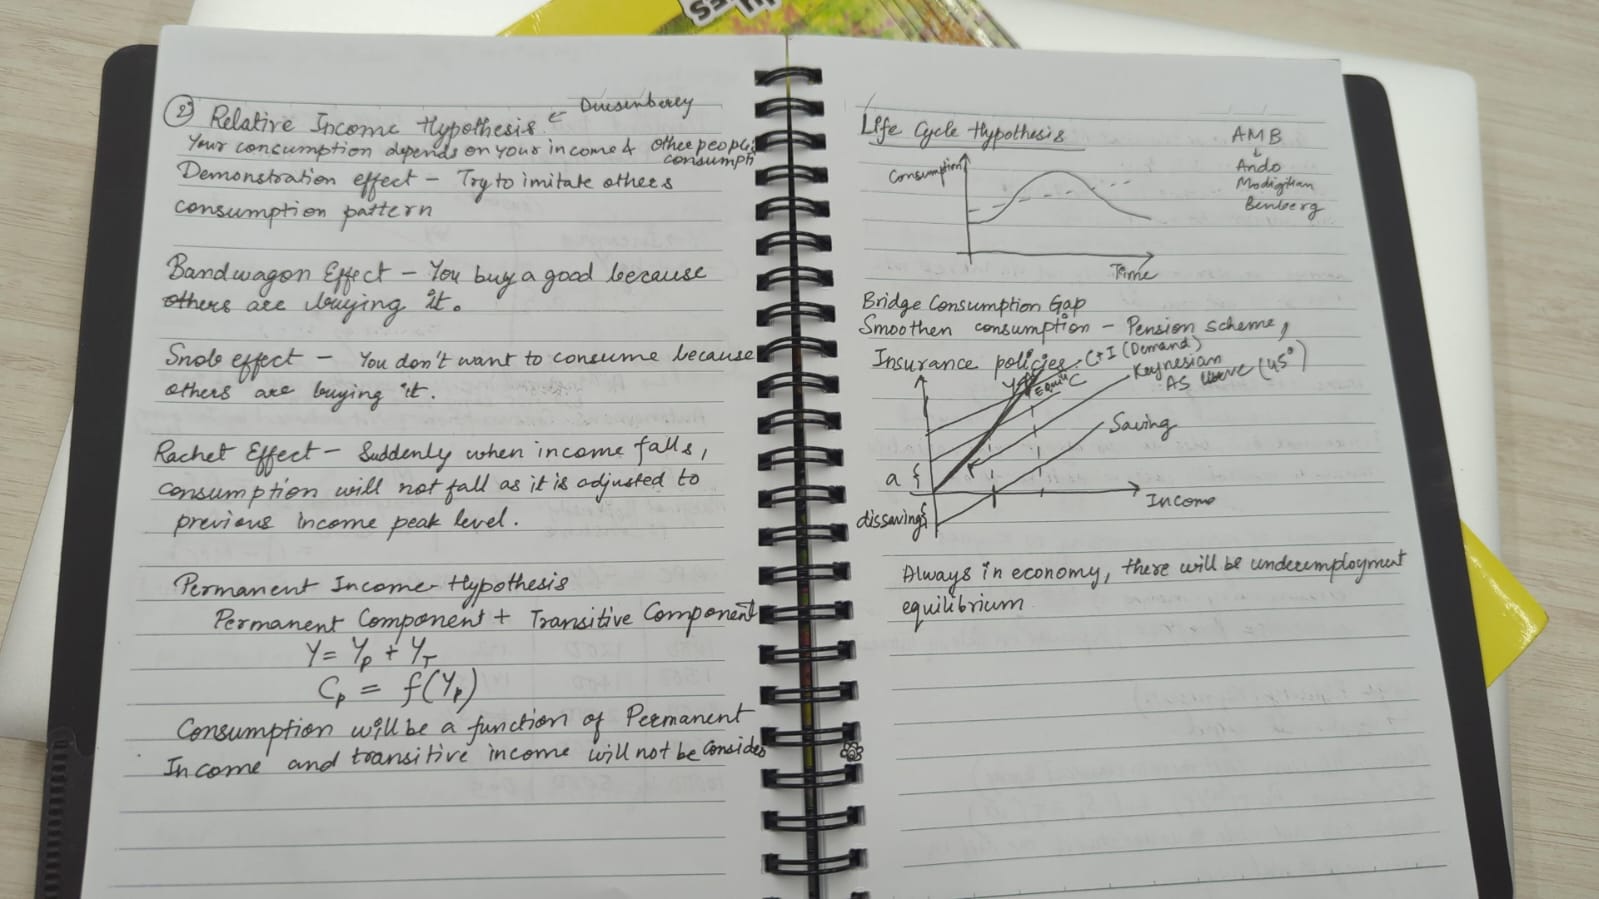 2 Relative Income Hypothesis ← Duesenberey
Your concumption depends on your income & other peoples
consumpti
Demonstration effect - Try to imitate others
consumption pattern
Bandwagon Effect - You buy a good because
others are buying it.
Snob effect - You don't want to consume because
others are buying it.
Rachet Effect - Suddenly when income falls,
consumption will not fall as it is adjusted to
previous income peak level.
Permanent Income Hypothesis
Permanent Component + Transitive Component
Y = Yp + YT
Cp = f(Yp)
Consumption will be a function of Permanent
Income and transitive income will not be Consider
Life Cycle Hypothesis
AMB
↓
Ando
Modiglian
Benberg
Consumption
Time
Bridge Consumption Gap
Smoothen consumption - Pension scheme,
Insurance policies
C+I (Demand)
Keynesian
AS curve (45°)
Equi
C
Saving
a {
Income
dissaving {
Always in economy, there will be underemployment
equilibrium